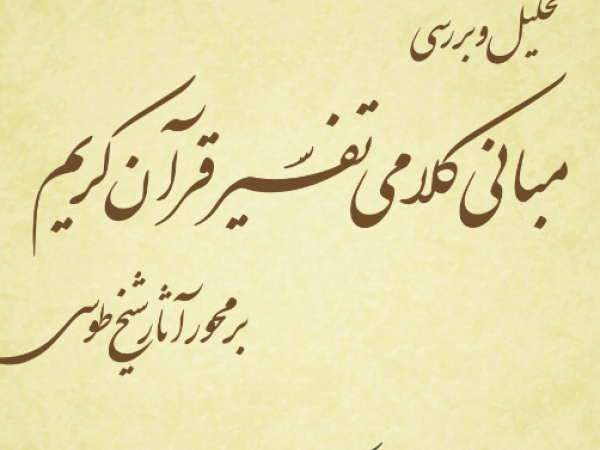 تحلیل و بررسی
مبانی کلامی تفسیر قرآن کریم
بر محور آثار شیخ طوسی